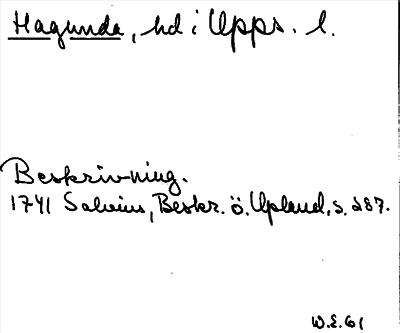 Hagunda, hd i Upps. l.
Beskrivning.
1741 Salvius, Beskr. ö. Upland, s. 287.
W.E. 61